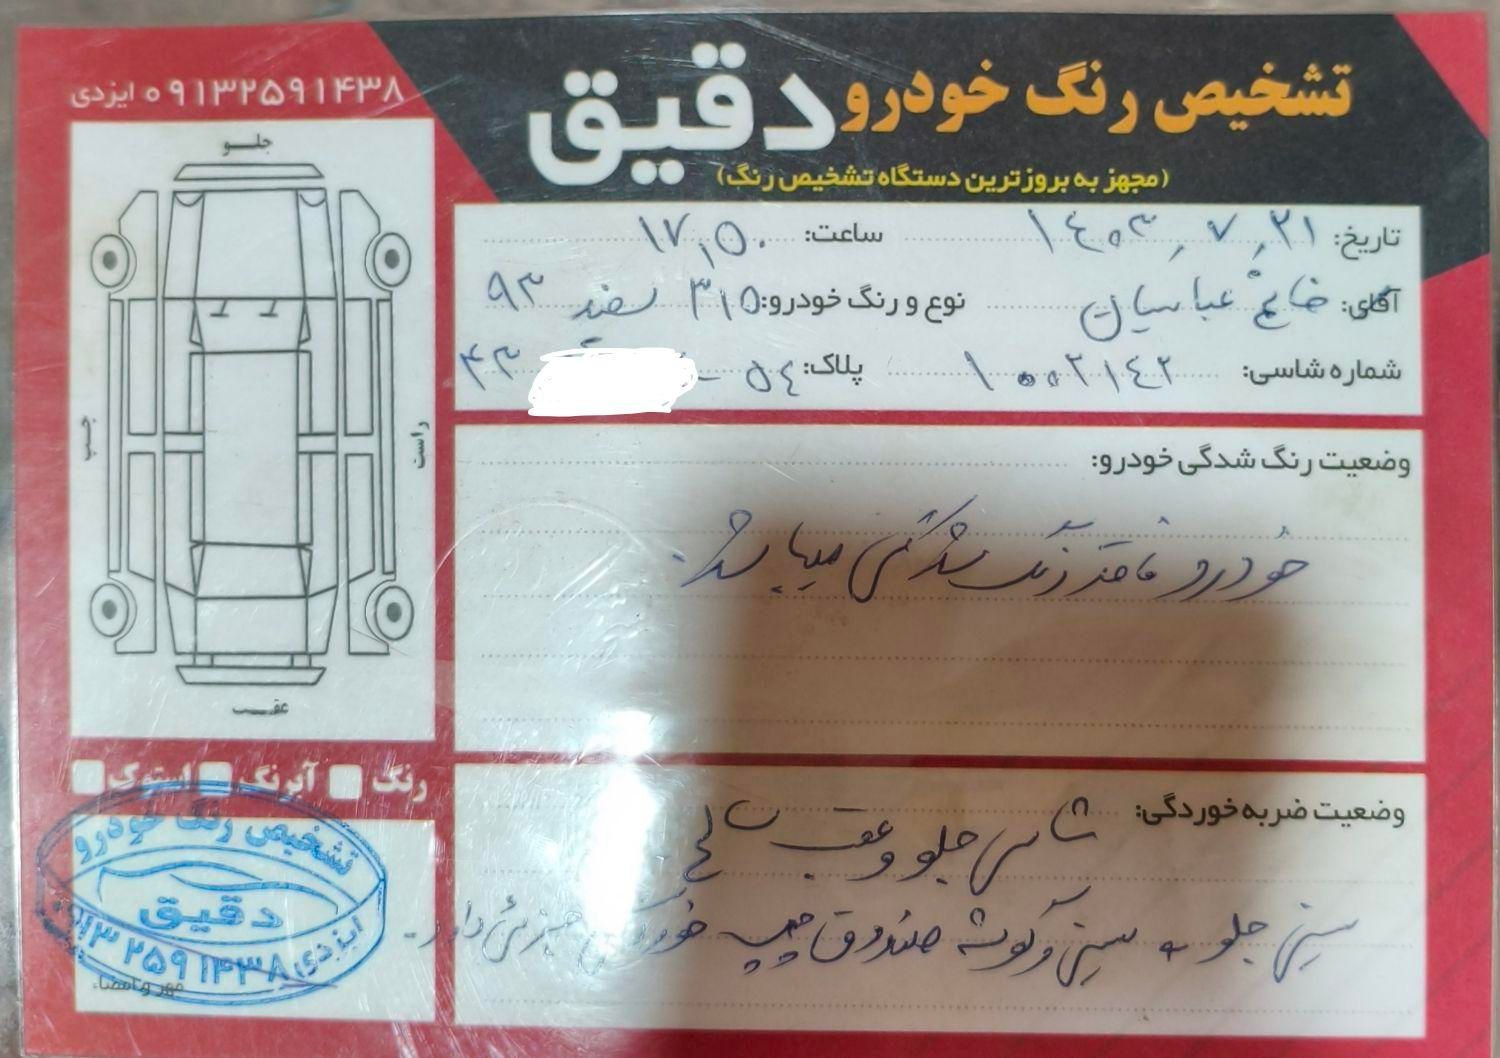 تشخیص رنگ خودرو دقیق
(مجهز به بروزترین دستگاه تشخیص رنگ)
۰۹۱۳۲۵۹۱۴۳۸ ایزدی
تاریخ: ۱۴۰۳,۷,۲۱ ساعت: ۱۷,۵۰
آقای: خانم عباسیان نوع و رنگ خودرو: ۳۱۵ سفید ۹۳
شماره شاسی: ۱۰۰۲۱۴۲ پلاک: ۵۴ - ۴۳
جلـــو
چپ
راست
عقـــب
وضعیت رنگ شدگی خودرو:
خودرو فاقد رنگ شدگی میباشد.
رنگ آبرنگ استوک
وضعیت ضربه خوردگی:
شاسی جلو و عقب سالم
سینی جلو و سینی و گوشه صندوق چپ خوردگی جزئی دارد.
تشخیص رنگ خودرو
دقیق
ایزدی ۰۹۱۳۲۵۹۱۴۳۸
مهر و امضاء